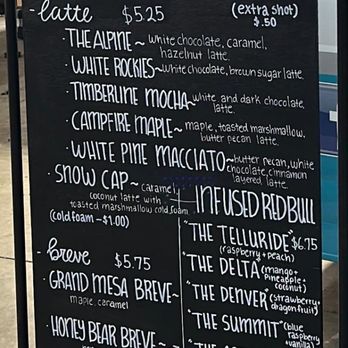 -latte $5.25 (extra shot)
$.50
·THE ALPINE~ white chocolate, caramel,
hazelnut latte.
·WHITE ROCKIES~ white chocolate, brown sugar latte.
·TIMBERLINE MOCHA~ white and dark chocolate
latte.
·CAMPFIRE MAPLE~ maple, toasted marshmallow,
butter pecan latte.
·WHITE PINE MACCIATO~ butter pecan, white
chocolate, cinnamon
layered latte.
·SNOW CAP~ caramel
coconut latte with
toasted marshmallow cold foam
(cold foam - $1.00)
-breve $5.75
·GRAND MESA BREVE~
maple, caramel
·HONEY BEAR BREVE~
INFUSED REDBULL
·"THE TELLURIDE" $6.75
(raspberry + peach)
·"THE DELTA" (mango +
pineapple +
coconut)
·"THE DENVER" (strawberry +
dragon fruit)
·"THE SUMMIT" (blue
raspberry
+vanilla)